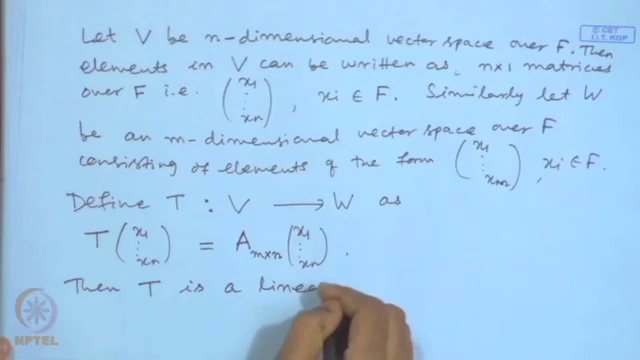 © CET
I.I.T. KGP
Let V be n-dimensional vector space over F. Then
elements in V can be written as, n×1 matrices
over F i.e. (x1 ⋮ xn) , xi ∈ F. Similarly let W
be an m-dimensional vector space over F
consisting of elements of the form (x1 ⋮ xm) , xi ∈ F.
Define T : V ⟶ W as
T (x1 ⋮ xn) = Am×n (x1 ⋮ xn) .
Then T is a linea
NPTEL